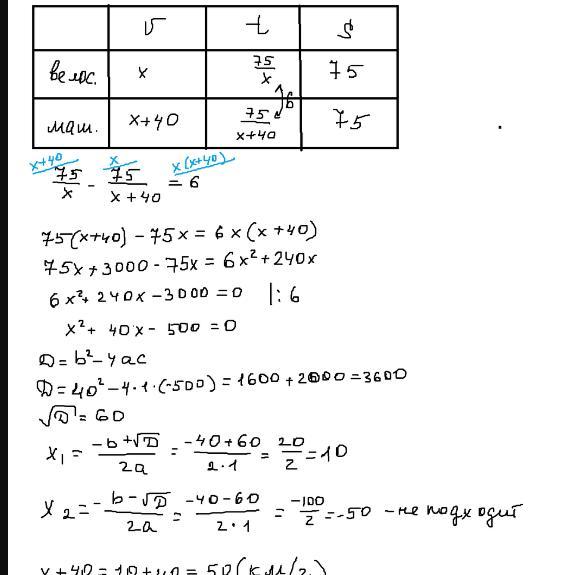 v t S
велос. x 75/x 75
6
маш. x+40 75/x+40 75
x+40 x x(x+40)
75/x - 75/x+40 = 6
75(x+40) - 75x = 6x(x+40)
75x+3000-75x = 6x²+240x
6x²+240x-3000=0 |:6
x²+40x-500=0
D=b²-4ac
D=40²-4·1·(-500)=1600+2000=3600
√D=60
x₁ = -b+√D/2a = -40+60/2·1 = 20/2 = 10
x₂ = -b-√D/2a = -40-60/2·1 = -100/2 = -50 - не подходит
x+40=10+40=50(км/ч)